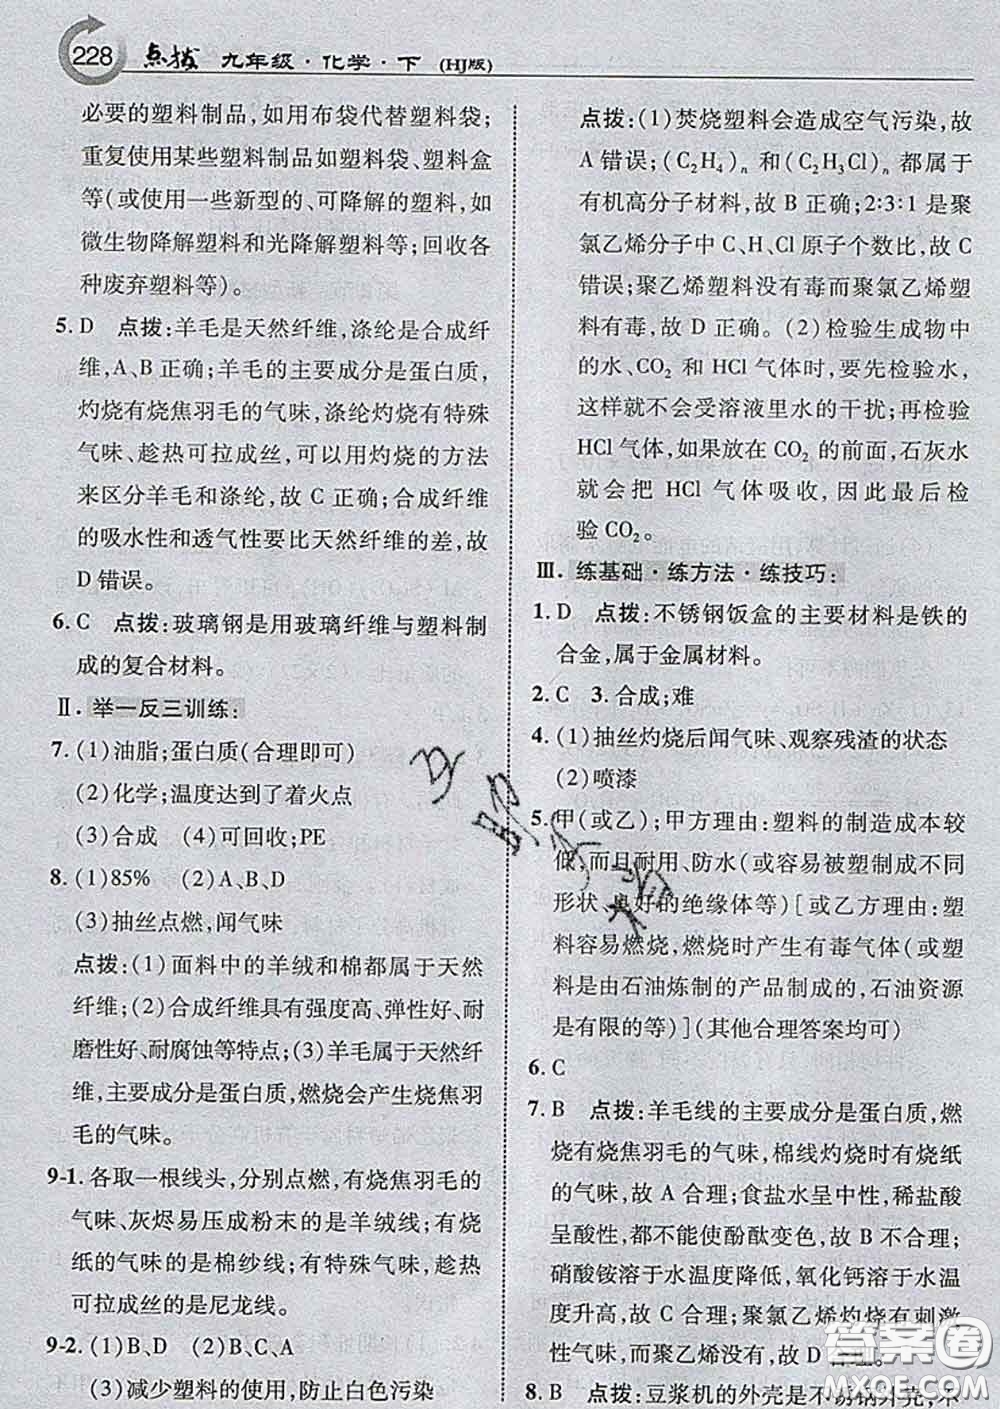 228 点拨 九年级·化学·下 (HJ版)
必要的塑料制品,如用布袋代替塑料袋;
重复使用某些塑料制品如塑料袋、塑料盒
等(或使用一些新型的、可降解的塑料,如
微生物降解塑料和光降解塑料等;回收各
种废弃塑料等)。
5. D 点拨:羊毛是天然纤维,涤纶是合成纤
维,A、B 正确;羊毛的主要成分是蛋白质,
灼烧有烧焦羽毛的气味,涤纶灼烧有特殊
气味、趁热可拉成丝,可以用灼烧的方法
来区分羊毛和涤纶,故 C 正确;合成纤维
的吸水性和透气性要比天然纤维的差,故
D 错误。
6. C 点拨:玻璃钢是用玻璃纤维与塑料制
成的复合材料。
Ⅱ. 举一反三训练:
7. (1)油脂;蛋白质(合理即可)
(2)化学;温度达到了着火点
(3)合成 (4)可回收;PE
8. (1)85% (2)A、B、D
(3)抽丝点燃,闻气味
点拨:(1)面料中的羊绒和棉都属于天然
纤维;(2)合成纤维具有强度高、弹性好、耐
磨性好、耐腐蚀等特点;(3)羊毛属于天然纤
维,主要成分是蛋白质,燃烧会产生烧焦羽
毛的气味。
9-1. 各取一根线头,分别点燃,有烧焦羽毛的
气味、灰烬易压成粉末的是羊绒线;有烧
纸的气味的是棉纱线;有特殊气味,趁热
可拉成丝的是尼龙线。
9-2. (1)B、D (2)B、C、A
(3)减少塑料的使用,防止白色污染
点拨:(1)焚烧塑料会造成空气污染,故
A 错误;(C₂H₄)ₙ 和(C₂H₃Cl)ₙ 都属于
有机高分子材料,故 B 正确;2∶3∶1是聚
氯乙烯分子中 C、H、Cl 原子个数比,故 C
错误;聚乙烯塑料没有毒而聚氯乙烯塑
料有毒,故 D 正确。(2)检验生成物中
的水、CO₂ 和 HCl 气体时,要先检验水,
这样就不会受溶液里水的干扰;再检验
HCl 气体,如果放在 CO₂ 的前面,石灰水
就会把 HCl 气体吸收,因此最后检
验 CO₂。
Ⅲ. 练基础·练方法·练技巧:
1. D 点拨:不锈钢饭盒的主要材料是铁的
合金,属于金属材料。
2. C 3. 合成;难
4. (1)抽丝灼烧后闻气味、观察残渣的状态
(2)喷漆
5. 甲(或乙);甲方理由:塑料的制造成本较
低,而且耐用、防水(或容易被塑制成不同
形状、良好的绝缘体等)[或乙方理由:塑
料容易燃烧,燃烧时产生有毒气体(或塑
料是由石油炼制的产品制成的,石油资源
是有限的等)](其他合理答案均可)
6. C
7. B 点拨:羊毛线的主要成分是蛋白质,燃
烧有烧焦羽毛的气味,棉线灼烧时有烧纸
的气味,故 A 合理;食盐水呈中性,稀盐酸
呈酸性,都不能使酚酞变色,故 B 不合理;
硝酸铵溶于水温度降低,氧化钙溶于水温
度升高,故 C 合理;聚氯乙烯灼烧有刺激
性气味,而聚乙烯没有,故 D 合理。
8. B 点拨:豆浆机的外壳是不锈钢外壳,不
答案圈
MXQE.COM